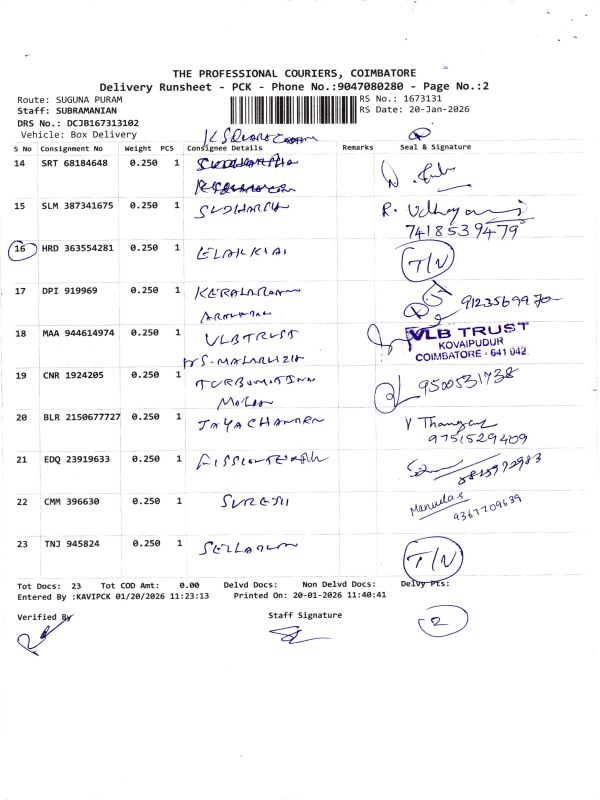 THE PROFESSIONAL COURIERS, COIMBATORE
Delivery Runsheet - PCK - Phone No.:9047080280 - Page No.:2
Route: SUGUNA PURAM
RS No.: 1673131
Staff: SUBRAMANIAN
RS Date: 20-Jan-2026
DRS No.: DCJB167313102
Vehicle: Box Delivery
S No Consignment No Weight PCS Consignee Details Remarks Seal & Signature
14 SRT 68184648 0.250 1
15 SLM 387341675 0.250 1 SUDHARSH
7418539479
16 HRD 363554281 0.250 1 ELAKKIA T/N
17 DPI 919969 0.250 1
18 MAA 944614974 0.250 1 VLB TRUST VLB TRUST
KOVAIPUDUR
COIMBATORE - 641 042
19 CNR 1924205 0.250 1 9500531738
20 BLR 2150677727 0.250 1 JAYACHANDRN
9751529409
21 EDQ 23919633 0.250 1
22 CMM 396630 0.250 1 SURESH
9367709639
23 TNJ 945824 0.250 1 T/N
Tot Docs: 23 Tot COD Amt: 0.00 Delvd Docs: Non Delvd Docs: Delvy Pts:
Entered By :KAVIPCK 01/20/2026 11:23:13 Printed On: 20-01-2026 11:40:41
Verified By Staff Signature
2